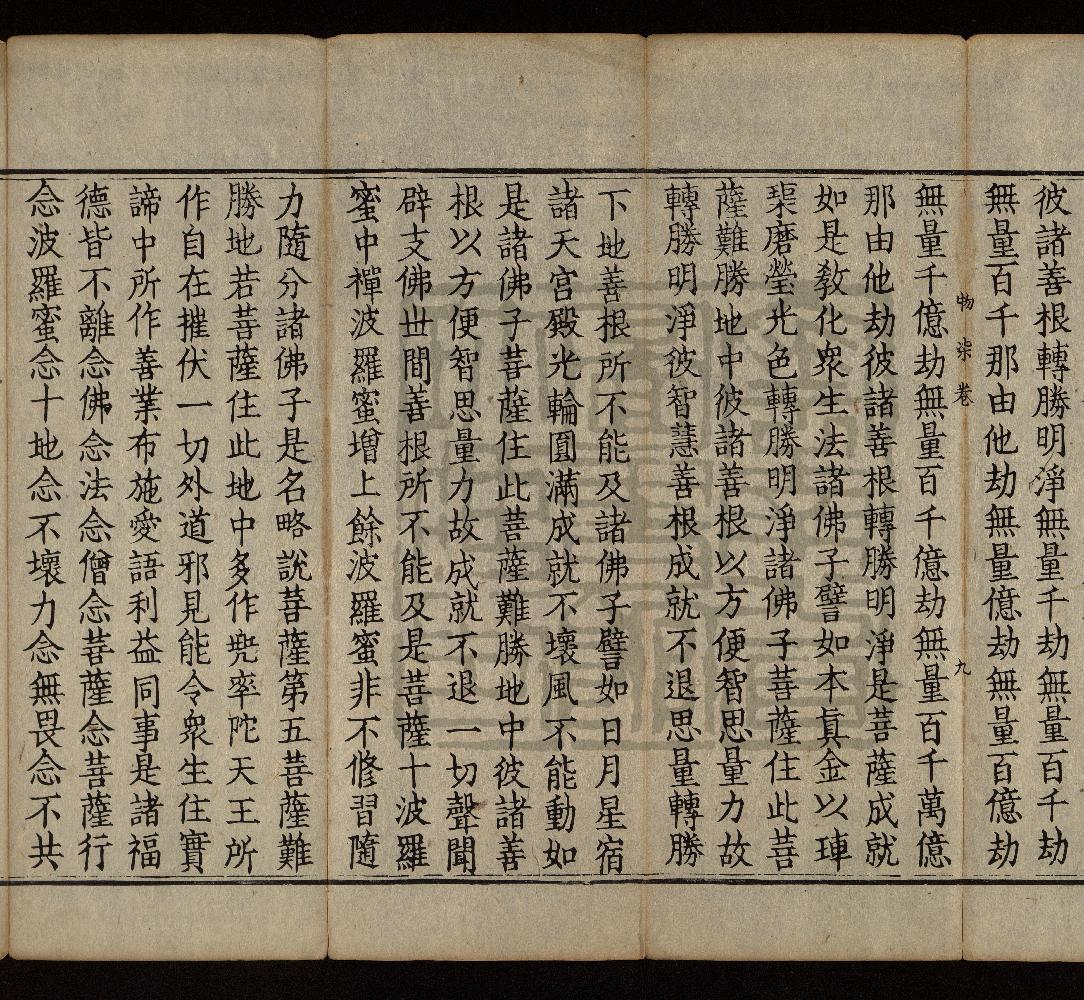 彼諸善根轉勝明淨無量千劫無量百千劫
無量百千那由他劫無量億劫無量百億劫
物 柒卷 九
無量千億劫無量百千億劫無量百千萬億
那由他劫彼諸善根轉勝明淨是菩薩成就
如是教化衆生法諸佛子譬如本真金以硨
磲磨瑩光色轉勝明淨諸佛子菩薩住此菩
薩難勝地中彼諸善根以方便智思量力故
轉勝明淨彼智慧善根成就不退思量轉勝
下地善根所不能及諸佛子譬如日月星宿
諸天宮殿光輪圓滿成就不壞風不能動如
是諸佛子菩薩住此菩薩難勝地中彼諸善
根以方便智思量力故成就不退一切聲聞
辟支佛世間善根所不能及是菩薩十波羅
蜜中禪波羅蜜增上餘波羅蜜非不修習隨
力隨分諸佛子是名略說菩薩第五菩薩難
勝地若菩薩住此地中多作兜率陀天王所
作自在摧伏一切外道邪見能令衆生住實
諦中所作善業布施愛語利益同事是諸福
德皆不離念佛念法念僧念菩薩念菩薩行
念波羅蜜念十地念不壞力念無畏念不共